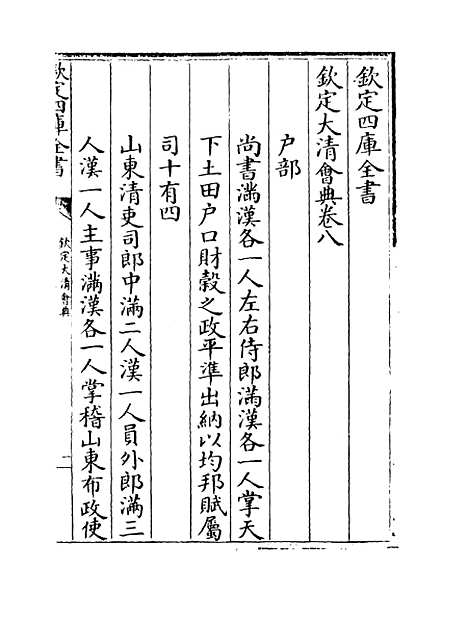 欽定四庫全書
欽定大清會典卷八
户部
尚書滿漢各一人左右侍郎滿漢各一人掌天
下土田户口財穀之政平準出納以均邦賦屬
司十有四
山東清吏司郎中滿二人漢一人員外郎滿三
人漢一人主事滿漢各一人掌稽山東布政使
欽定四庫全書
欽定大清會典